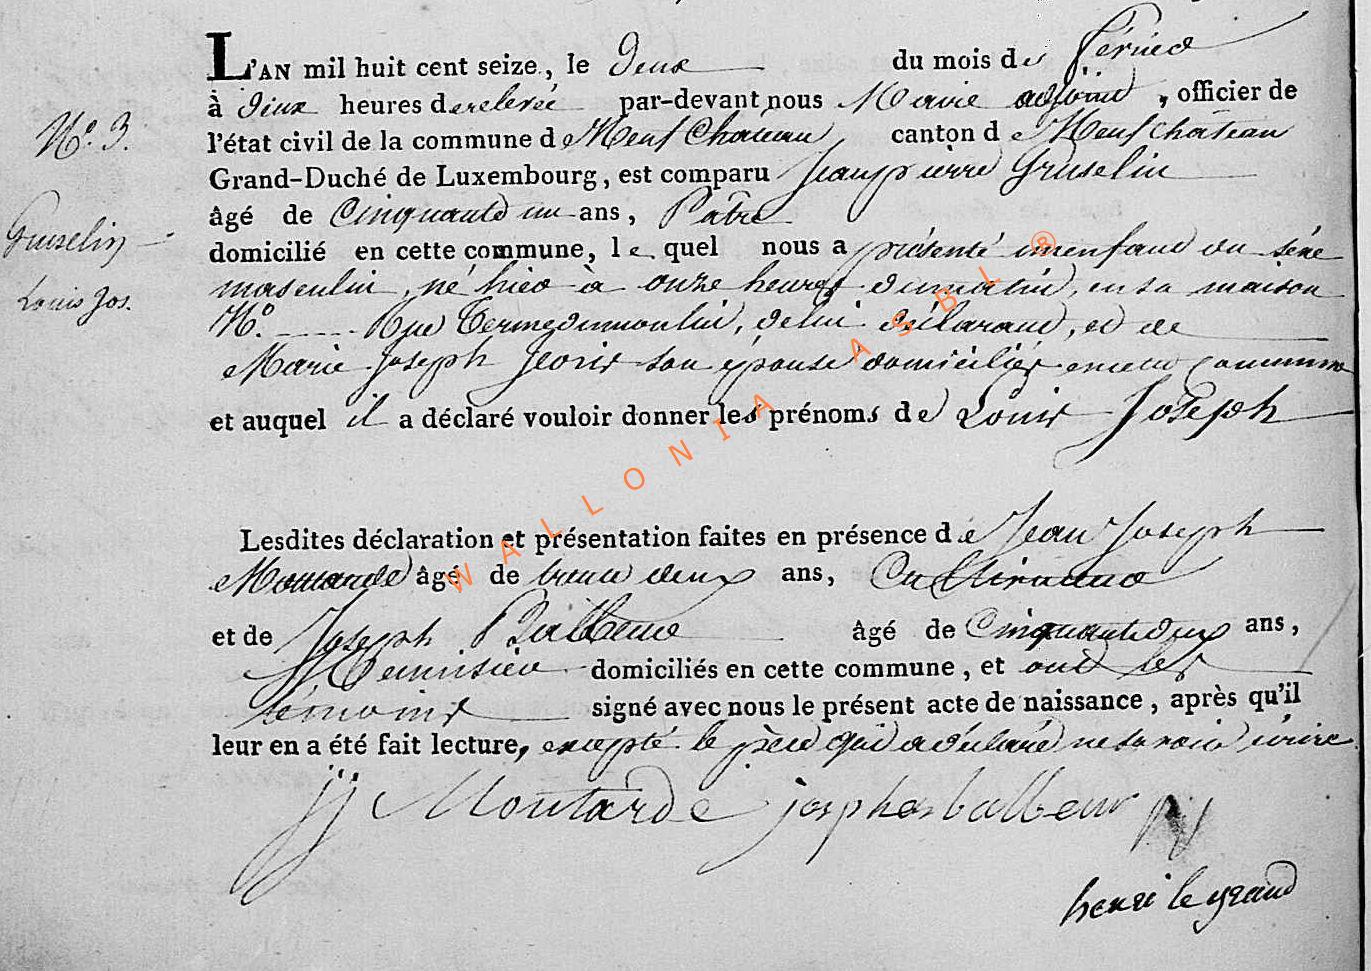 L'AN mil huit cent seize, le Deux du mois de février
à deux heures de relevée par-devant nous Maire adjoint, officier de
N.° 3. l'état civil de la commune de Neufchateau canton de Neufchateau
Grand-Duché de Luxembourg, est comparu Jean pierre Gruselin
âgé de Cinquante un ans, Patre
Gruselin domicilié en cette commune, lequel nous a présenté un enfant du séxe
Louis Jos. masculin, né hier à onze heures du matin, en sa maison
N.° Rue Terme du moulin, de lui déclarant, et de
Marie Joseph Jeoris son épouse domiciliés en cette commune
et auquel il a déclaré vouloir donner les prénoms de Louis Joseph
Lesdites déclaration et présentation faites en présence de Jean Joseph
Moutarde âgé de trente deux ans,
et de Joseph Balbeur âgé de Cinquante deux ans,
Menuisier domiciliés en cette commune, et ont les
témoins signé avec nous le présent acte de naissance, après qu'il
leur en a été fait lecture, excepté le père qui a déclaré ne savoir écrire
jj Moutarde josphas balbeur
henri legrand
WALLONIA ASBL ®